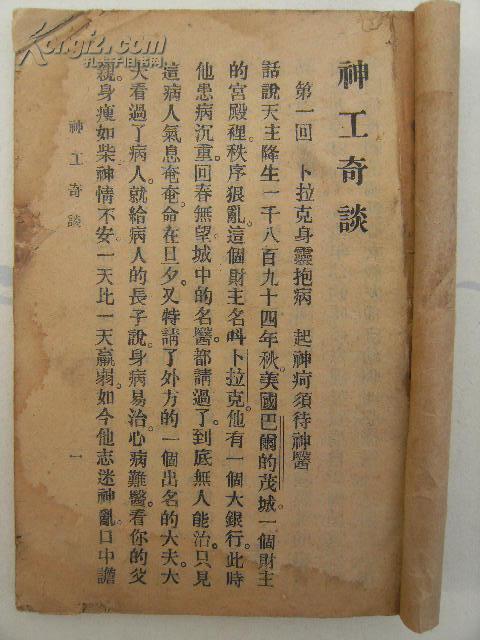 神工奇談
第一回 卜拉克身靈抱病 起神疴須待神醫
話說天主降生一千八百九十四年秋。美國巴爾的茂城一個財主
的宮殿裡。秩序狠亂。這個財主名呌卜拉克。他有一個大銀行。此時
他患病沉重。回春無望。城中的名醫。都請過了。到底無人能治。只見
這病人氣息奄奄。命在旦夕。又特請了外方的一個出名的大夫。大
夫看過了病人。就給病人的長子說。身病易治。心病難醫。看你的父
親。身瘦如柴。神情不安。一天比一天羸弱。如今他志迷神亂。口中譫
神工奇談 一
Kongfz.com
孔夫子旧书网